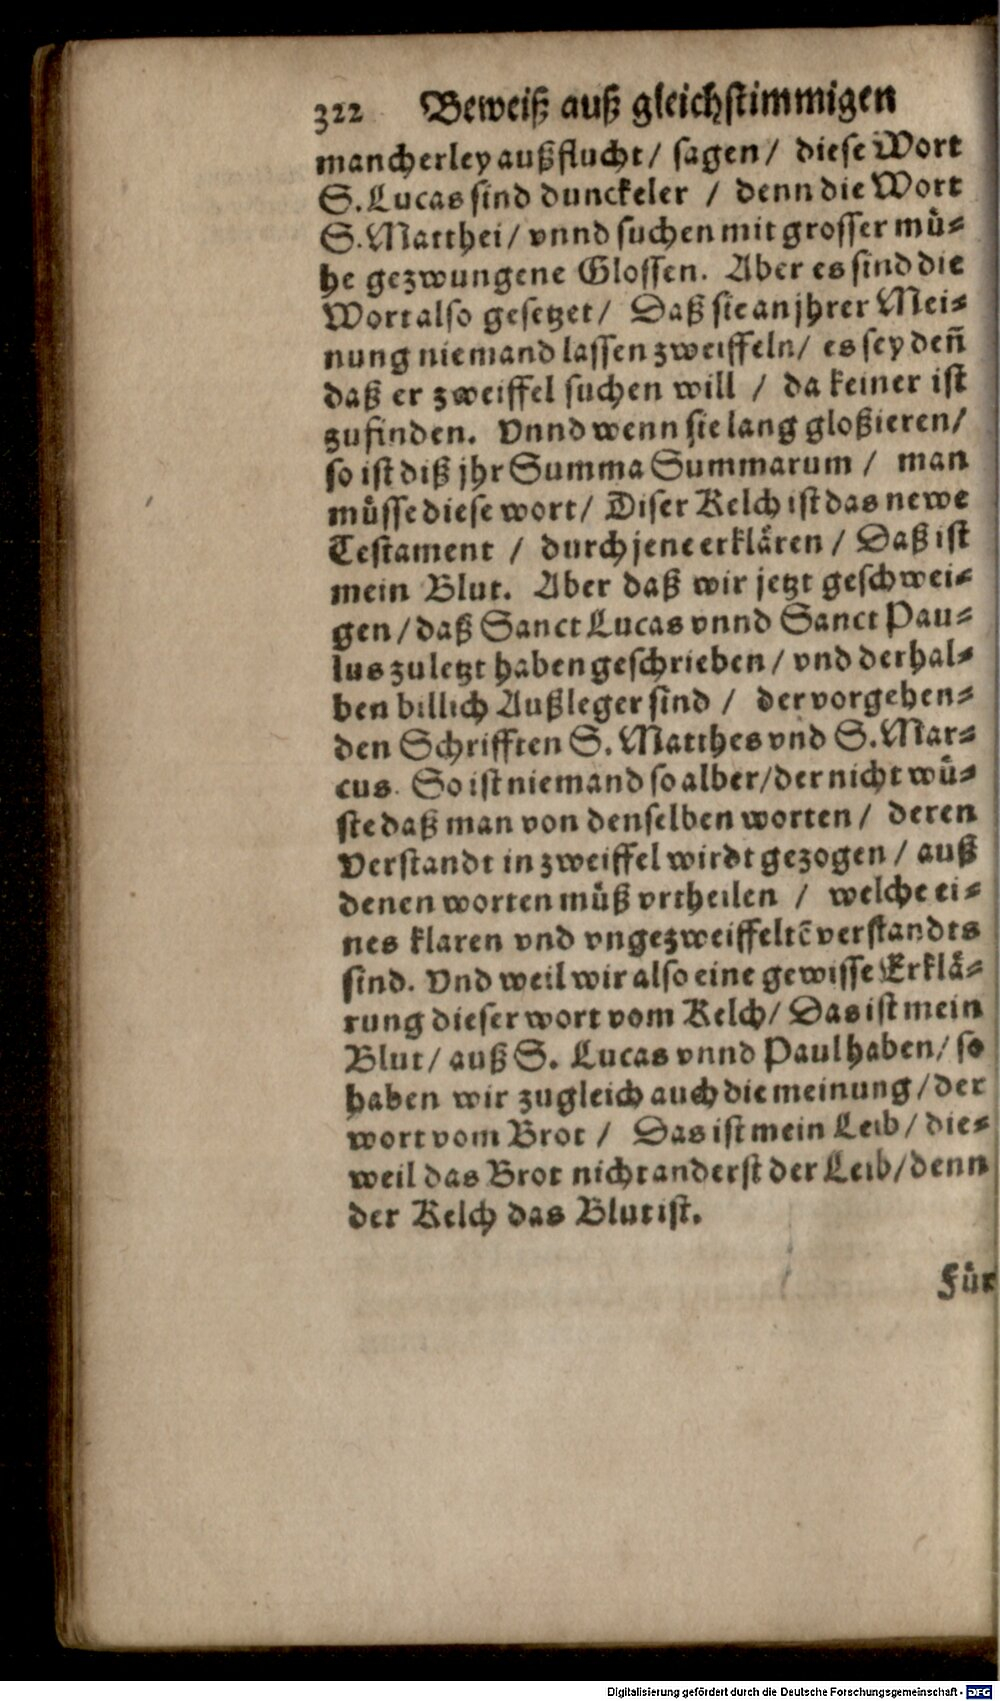 322 Beweiß auß gleichstimmigen
mancherley außflucht/ sagen/ diese Wort
S. Lucas sind dunckeler / denn die Wort
S. Matthei/ vnnd suchen mit grosser mü⸗
he gezwungene Glossen. Aber es sind die
Wort also gesetzet/ Daß sie an jhrer Mei⸗
nung niemand lassen zweiffeln/ es sey deñ
daß er zweiffel suchen will / da keiner ist
zufinden. Vnnd wenn sie lang gloßieren/
so ist diß jhr Summa Summarum / man
müsse diese wort/ Diser Kelch ist das newe
Testament / durch jene erklären / Daß ist
mein Blut. Aber daß wir jetzt geschwei⸗
gen/ daß Sanct Lucas vnnd Sanct Pau⸗
lus zuletzt haben geschrieben/ vnd derhal⸗
ben billich Außleger sind / der vorgehen⸗
den Schrifften S. Matthes vnd S. Mar⸗
cus. So ist niemand so alber/ der nicht wü⸗
ste daß man von denselben worten / deren
Verstandt in zweiffel wirdt gezogen / auß
denen worten müß vrtheilen / welche ei⸗
nes klaren vnd vngezweiffeltē verstandts
sind. Vnd weil wir also eine gewisse Erklä⸗
rung dieser wort vom Kelch/ Das ist mein
Blut/ auß S. Lucas vnnd Paul haben/ so
haben wir zugleich auch die meinung/ der
wort vom Brot / Das ist mein Leib/ die⸗
weil das Brot nicht anderst der Leib/ denn
der Kelch das Blut ist.
Für
Digitalisierung gefördert durch die Deutsche Forschungsgemeinschaft - DFG